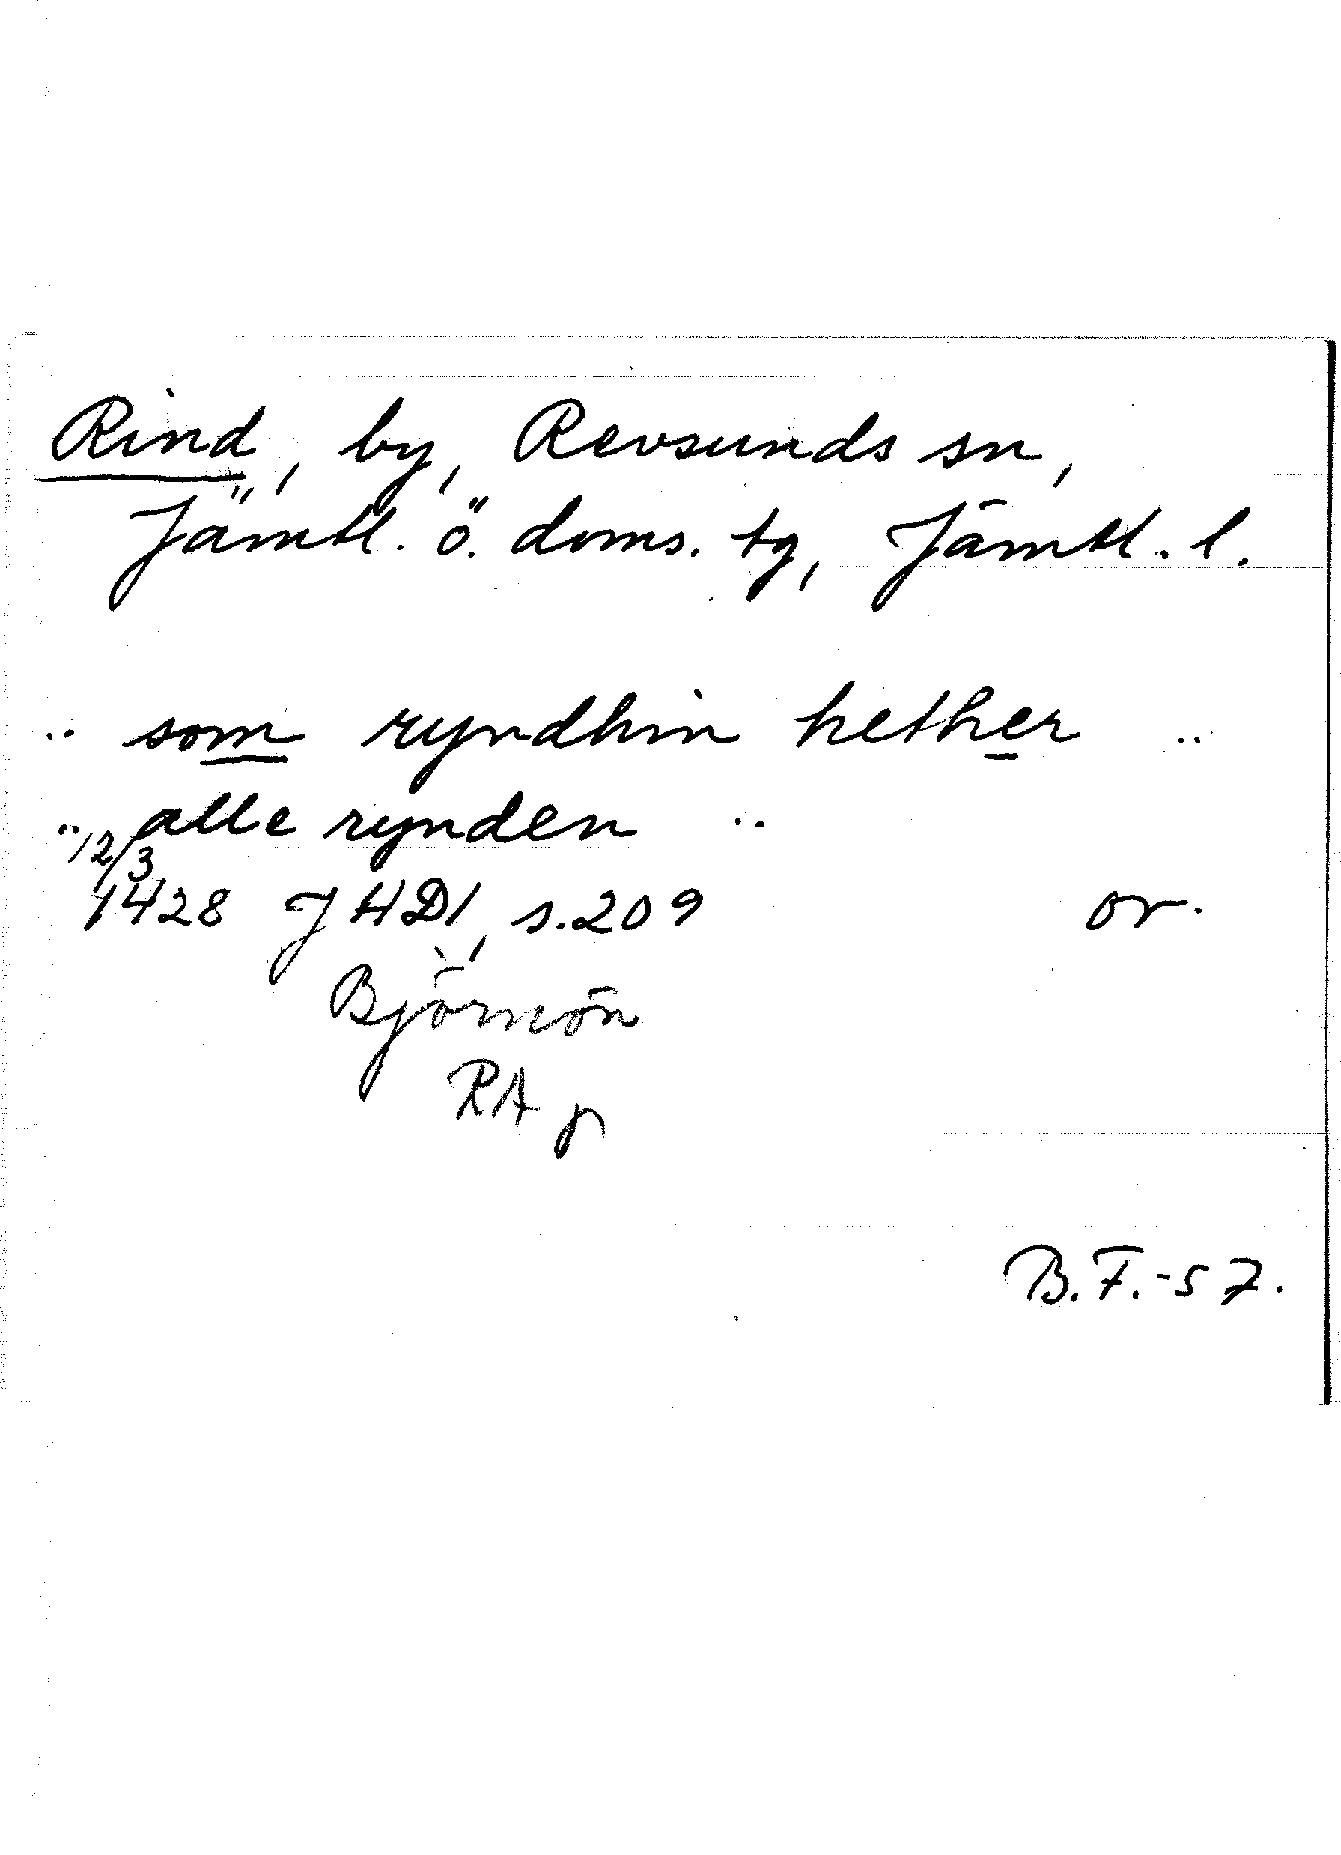 Rind, by, Revsunds sn,
Jämtl. ö. doms. tg, Jämtl. l.
.. som ryndhin hether ..
.. alle rynden ..
12/3
1428 JHD1, s.209 or.
Björnön
RA p
B.F.-57.